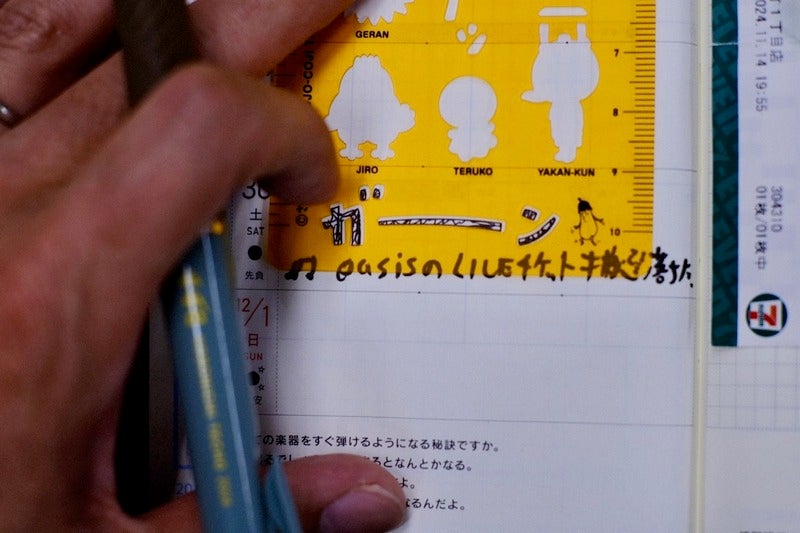 GERAN
7
8
JIRO
TERUKO
YAKAN-KUN
9
30
土
SAT
先負
ガーン
10
♫ oasisのLIVEチケット
12/1
日
SUN
の楽器をすぐ弾けるようになる秘訣ですか。
るとなんとかなる。
よ。
なるんだよ。
20
1丁目店
2024.11.14 19:55
304310
01枚/01枚中